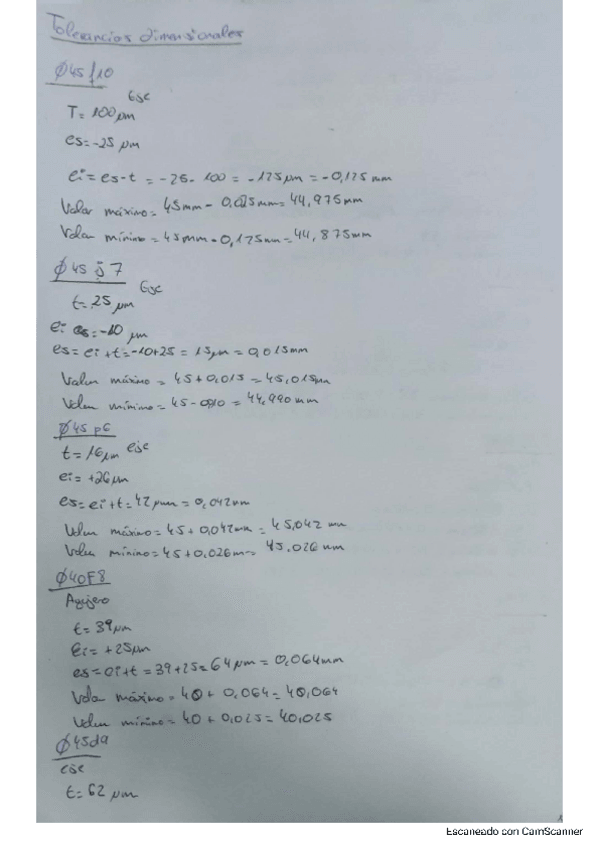 Tolerancias dimensionales
Ø45 f10
Eje
T = 100 µm
es = -25 µm
ei = es - t = -25 - 100 = -125 µm = -0,125 mm
Valor máximo = 45mm - 0,025mm = 44,975mm
Valor mínimo = 45mm - 0,125mm = 44,875mm
Ø45 j7
Eje
t = 25 µm
ei = -10 µm
es = ei + t = -10 + 25 = 15 µm = 0,015mm
Valor máximo = 45 + 0,015 = 45,015µm
Valor mínimo = 45 - 0,010 = 44,990mm
Ø45 p6
t = 16 µm eje
ei = +26 µm
es = ei + t = 42 µm = 0,042mm
Valor máximo = 45 + 0,042mm = 45,042 mm
Valor mínimo = 45 + 0,026m = 45.026 mm
Ø40F8
Agujero
t = 39 µm
Ei = +25µm
es = ei + t = 39 + 25 = 64 µm = 0,064mm
Valor máximo = 40 + 0,064 = 40,064
Valor mínimo = 40 + 0,025 = 40,025
Ø45d9
eje
t = 62 µm
Escaneado con CamScanner